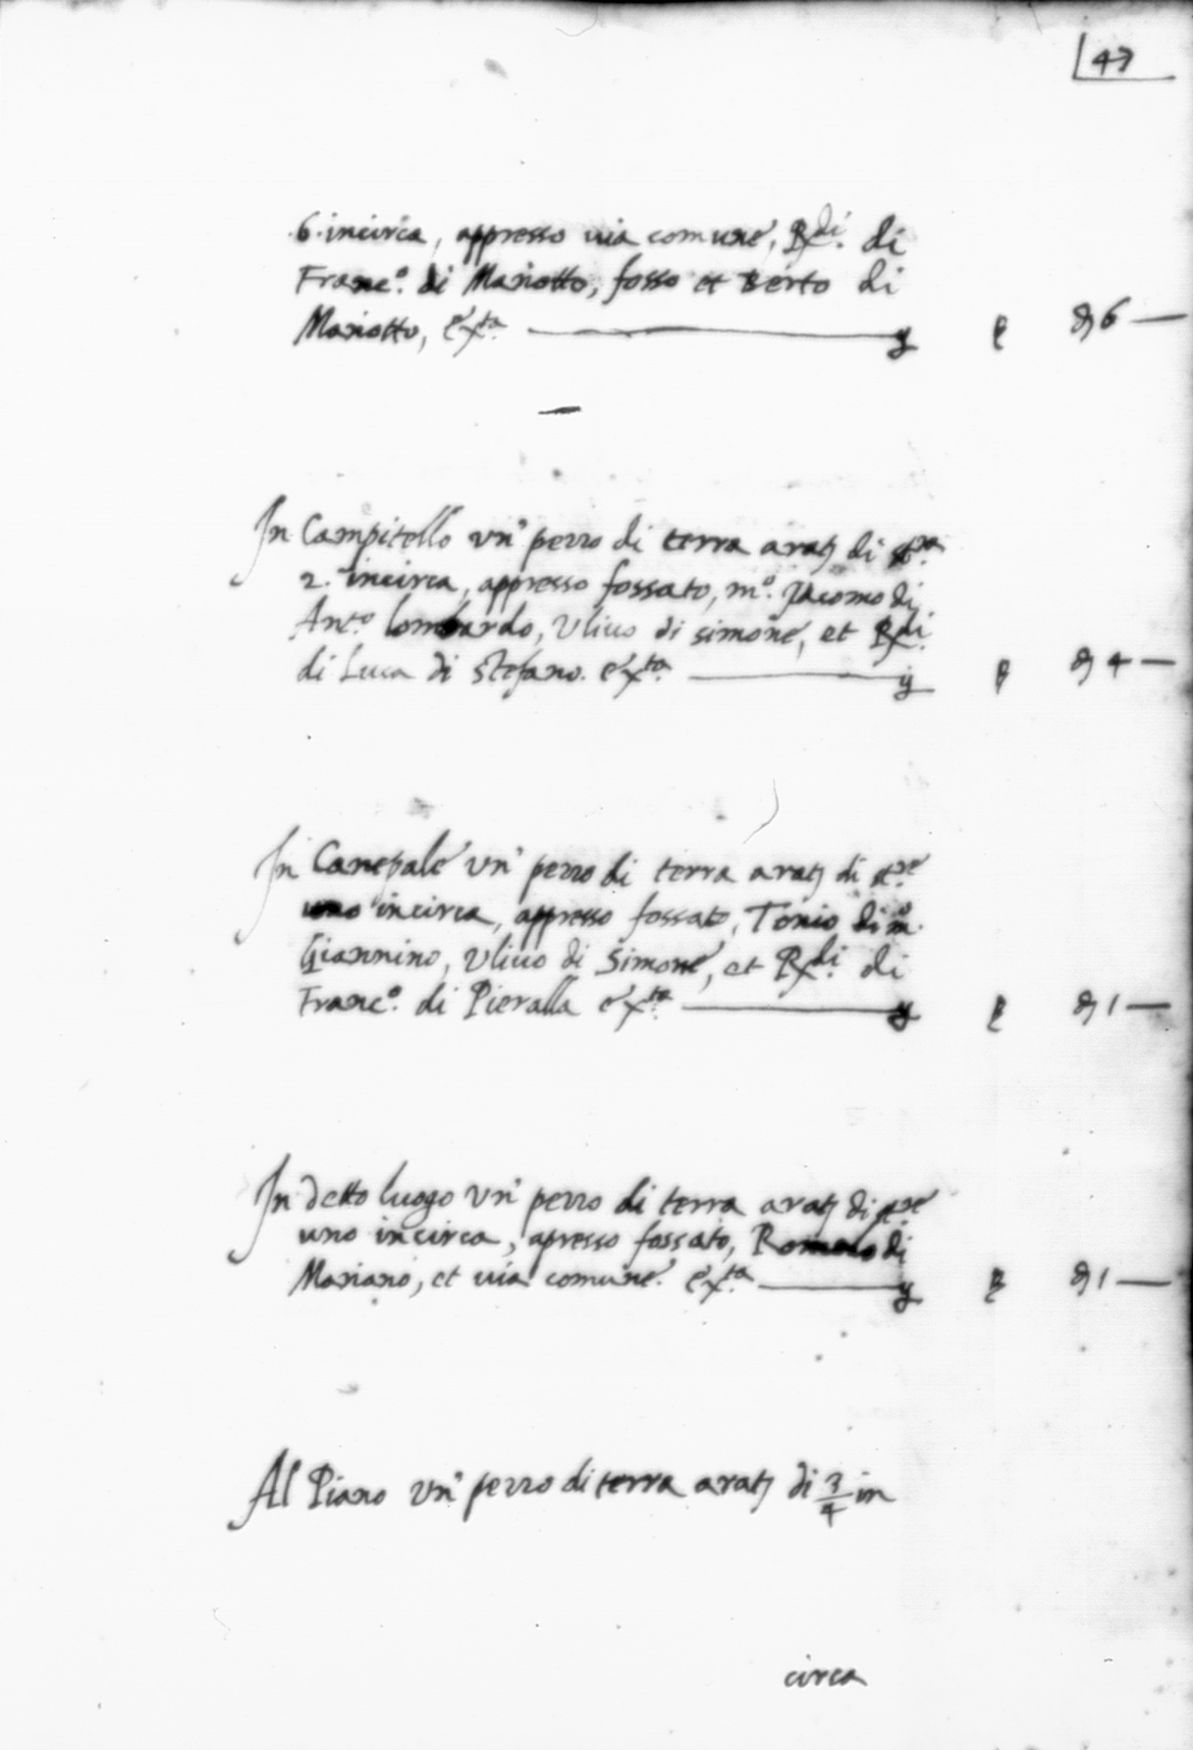 47
.6. incirca, appresso uia comune, Rdi. di
Franc.o di Mariotto, fosso et Berto di
Mariotto, exta. 6
In Campitello un' pezzo di terra arat. di sta.
2. incirca, appresso fossato, m.o Jacomo di
Ant.o lombardo, Uliuo di simone, et Rdi.
di Luca di stefano. exta. 4
In Canepale un' pezzo di terra arat. di sre.
uno incirca, appresso fossato, Tonio di m.o
Giannino, Uliuo di Simone, et Rdi. di
Franc.o di Pieralla exta. 1
In detto luogo un' pezzo di terra arat. di sre.
uno incirca, apresso fossato, Romolo di
Mariano, et uia comune. exta. 1
Al Piano un' pezzo di terra arat. di 3/4 in
circa